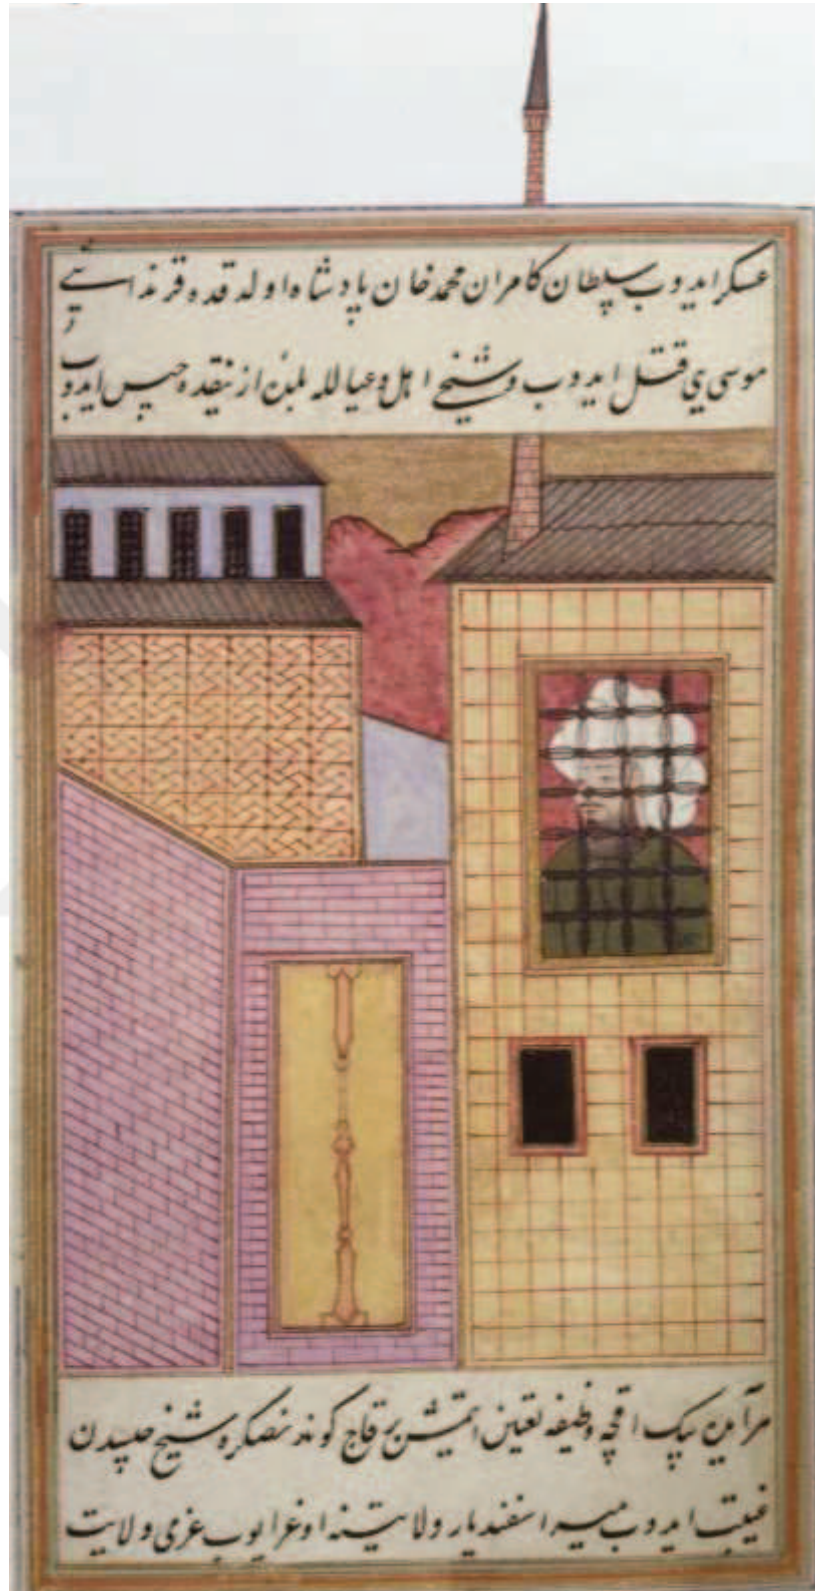 عسكر ايدوب سلطان كامران محمد خان پادشاه اولدقده قرنداشى
موسى يى قتل ايدوب و شيخى اهل و عيالله بلين ازنيقده حبس ايدوب
هر آيده بيك اقچه وظيفه تعيين ايتمش بر قاچ كوندنصكره شيخ حبسدن
غيبت ايدوب مير اسفنديار ولايتنه اوغرايوب عزمى ولايت